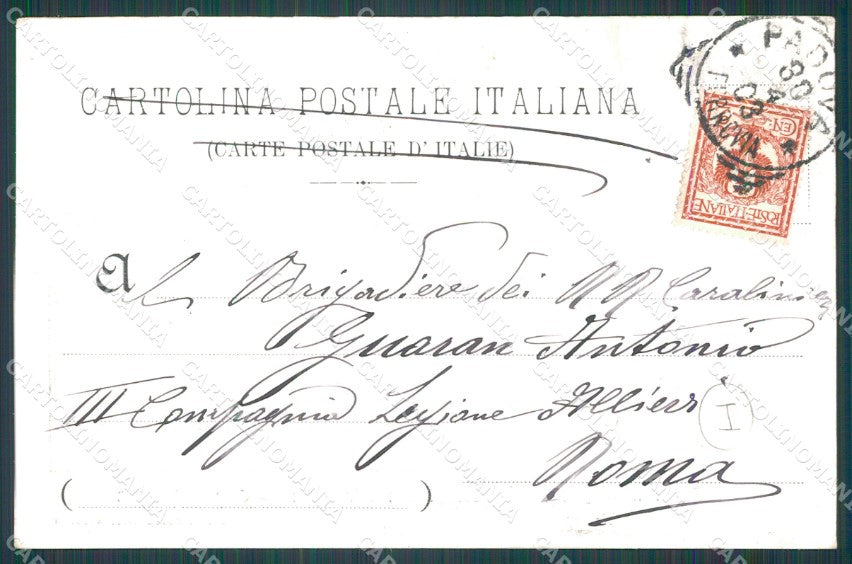 CARTOLINA POSTALE ITALIANA
(CARTE POSTALE D'ITALIE)
PADOVA
30 4 03
POSTE·ITALIANE
CEN
Al Brigadiere dei RR Carabinier
Guaran Antonio
III Compagnia Legione Allievi
I
Roma
( )
CARTOLINOMANIA